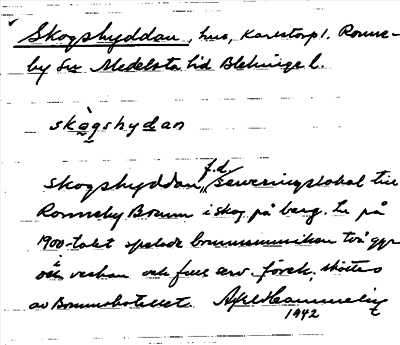 Skogshyddan, hus, Karlstorp 1. Ronne-
by sn Medelsta hd Blekinge l.
skògshydan
Skogshyddan, f.d. serveringslokal till
Ronneby Brunn i skog på berg. På
1900-talet spelade brunnsmusiken två ggr
i veckan och full serv. förek. sköttes
av Brunnshotellet. Axel Hammelin
1942